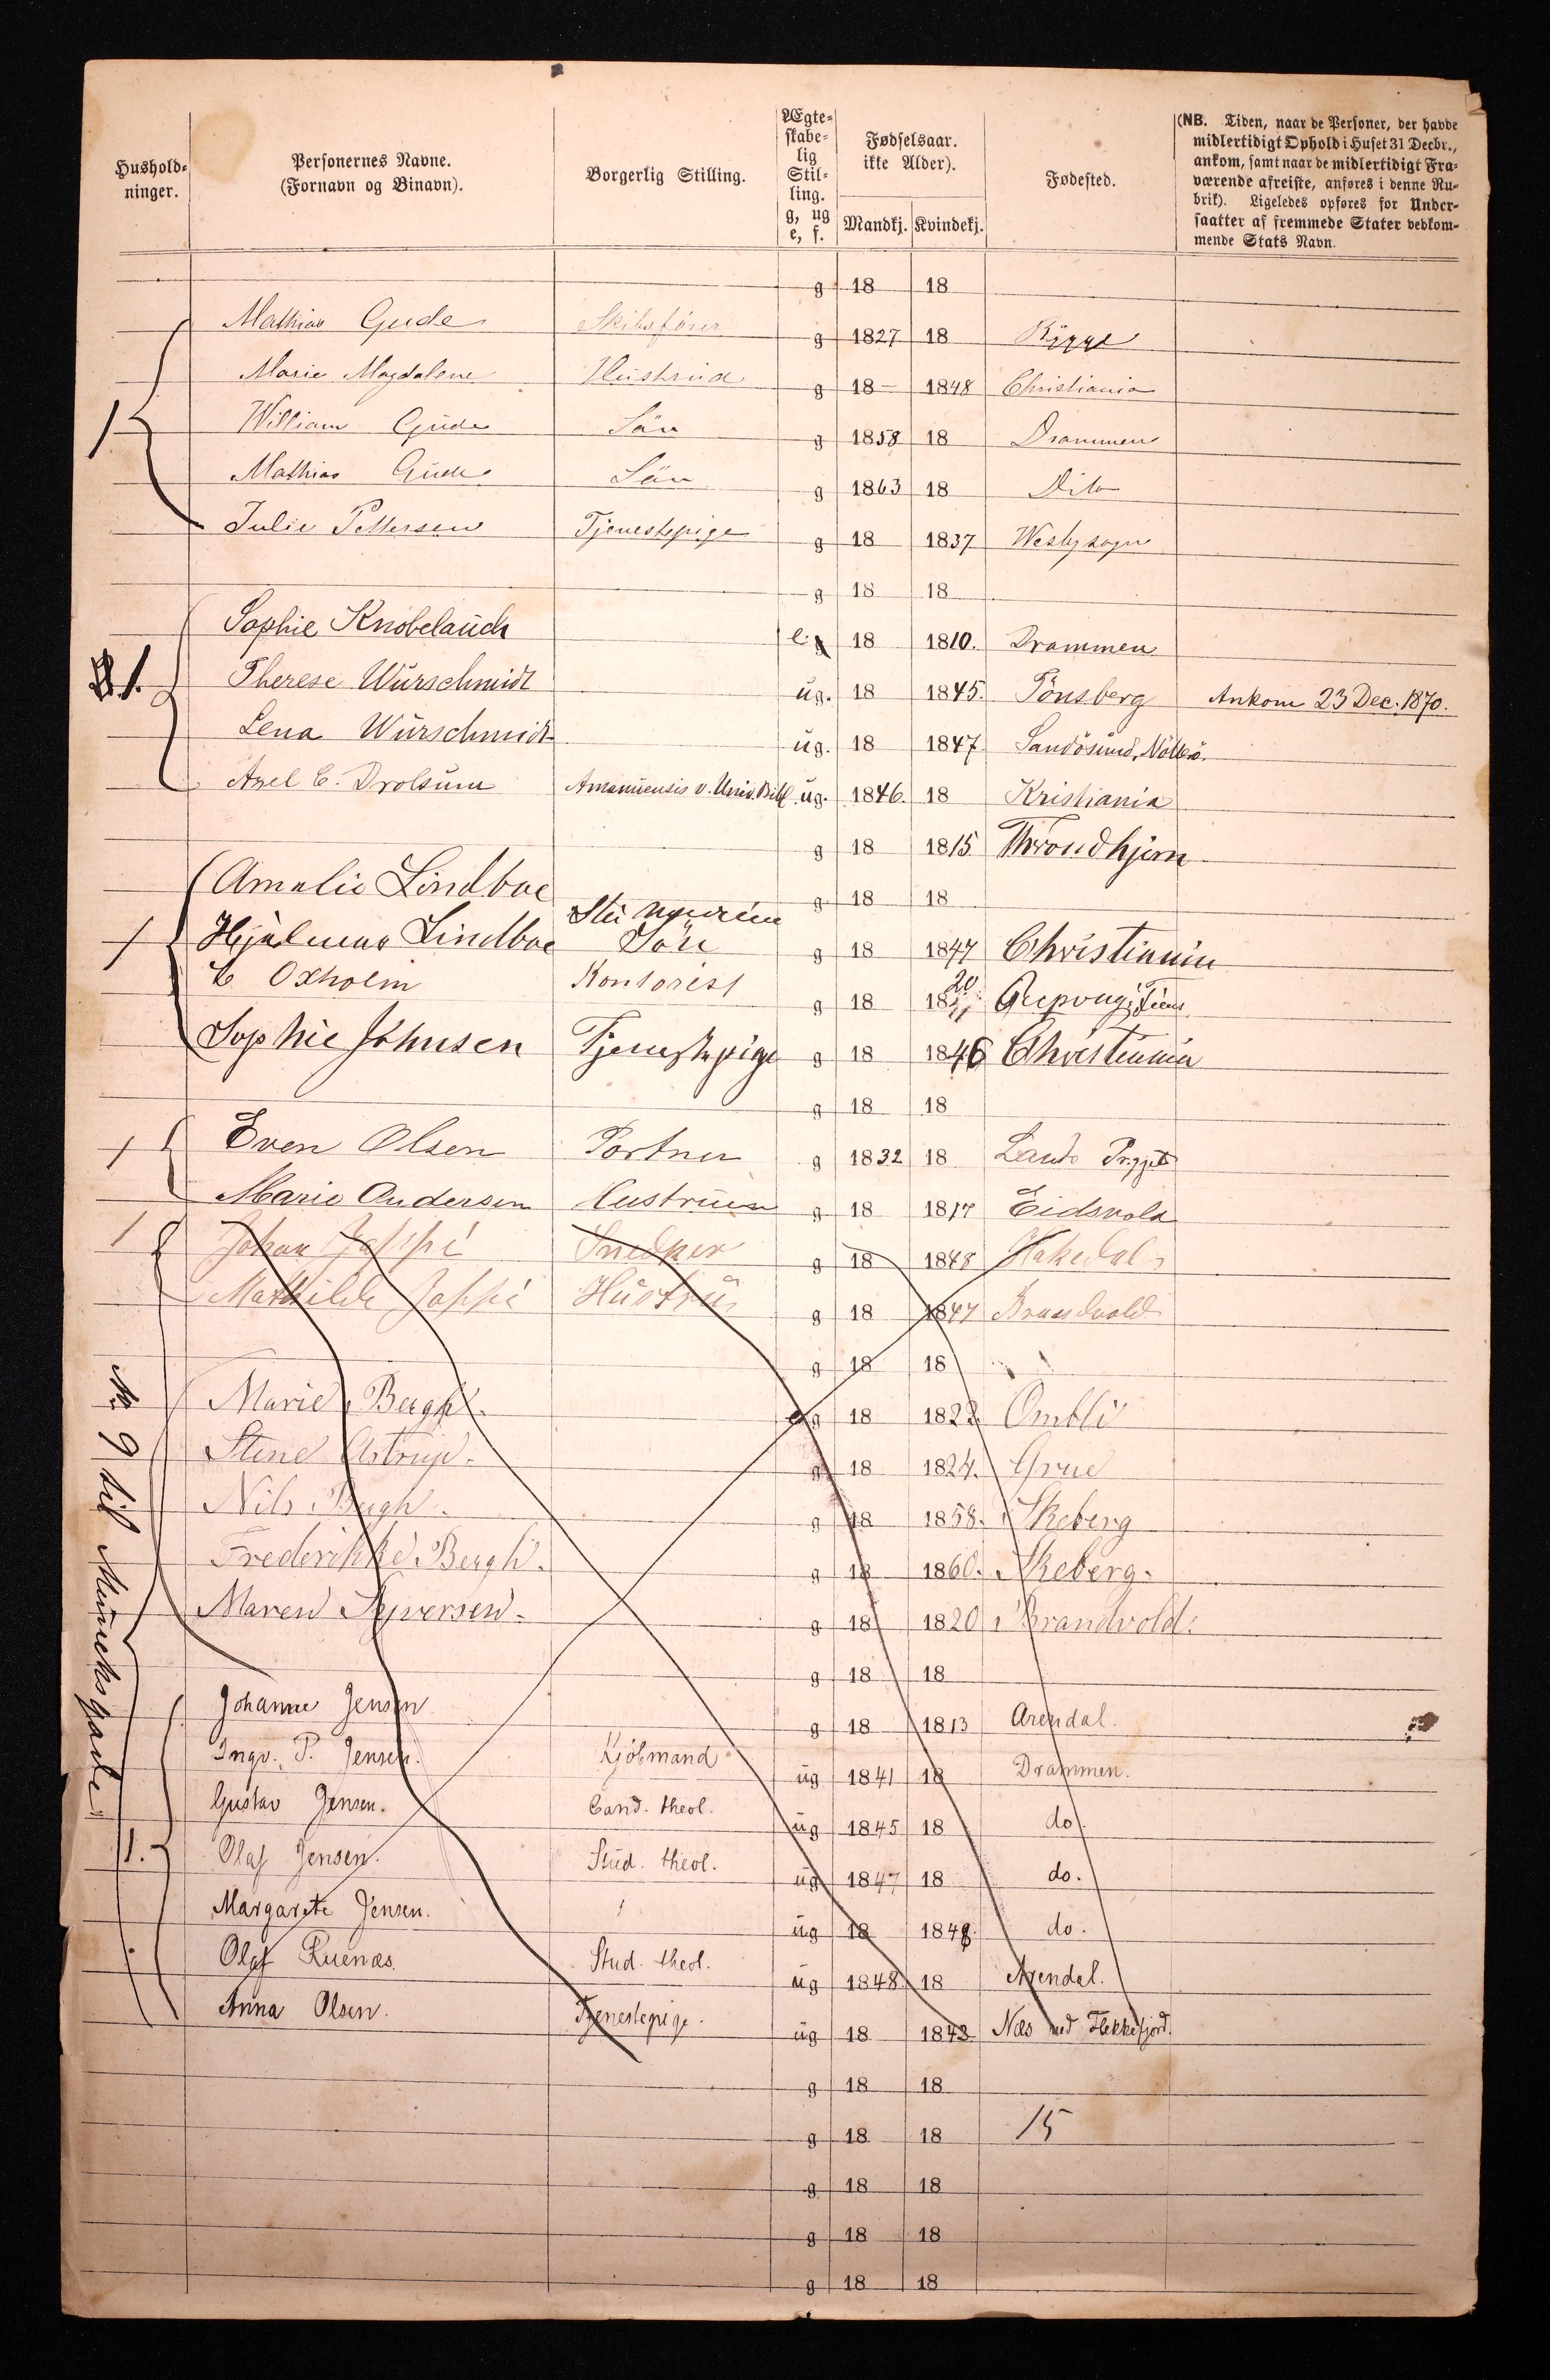 Hushold-
ninger.
Personernes Navne.
(Fornavn og Binavn).
Borgerlig Stilling.
Ægte-
skabe-
lig
Stil-
ling.
g, ug
e, f.
Fødselsaar.
ikke Alder).
Mandkj. Kvindekj.
Fødested.
(NB. Tiden, naar de Personer, der havde
midlertidigt Ophold i Huset 31 Decbr.,
ankom, samt naar de midlertidigt Fra-
værende afreiste, anføres i denne Ru-
brik). Ligeledes opføres for Under-
saatter af fremmede Stater vedkom-
mende Stats Navn.
g 18 18
Mathias Gude Skibsfører g 1827 18 Rygge
Marie Magdalene Hustrue g 18 1848 Christiania
1 William Gude Søn g 1858 18 Drammen
Mathias Gude Søn g 1863 18 Dito
Julie Pettersen Tjenestepige g 18 1837 Westbysogn
g 18 18
Sophie Knobelauch e. g 18 1810. Drammen
1. Therese Würschmidt ug. 18 1845. Tönsberg Ankom 23 Dec. 1870.
Lena Würschmidt ug. 18 1847 Sandösund, Nötterö.
Axel C. Drolsum Amanuensis v. Univ. Bibl. ug. 1846. 18 Kristiania
g 18 1815 Throndhjem
Amalie Lindboe g 18 18
1 Hjalmar Lindboe Søn g 18 1847 Christiania
C Oxholm Kontorist g 18 18 20
Sophie Johnsen Tjenestepige g 18 1846 Christiania
g 18 18
1 Even Olsen Portner g 1832 18 Lands Prgjeld
Marie Andersen Hustrue g 18 1817 Eidsvold
1 Johan Jappé Snedker g 18 1848 Hakedal
Mathilde Jappé Hustru g 18 1847 Brandvold
g 18 18
Marie Bergh. e g 18 1822. Ombli
Stine Astrup. g 18 1824. Grue
Nils Bergh. g 18 1858. Skeberg
Frederikke Bergh. g 18 1860. Skeberg.
Maren Syversen. g 18 1820 Brandvold.
g 18 18
Johanne Jensen g 18 1813 Arendal.
Ingv. P. Jensen. Kjøbmand ug 1841 18 Drammen.
Gustav Jensen. Cand. theol. ug 1845 18 do.
1. Olaf Jensen. Stud. theol. ug 1847 18 do.
Margarete Jensen. ug 18 1848. do.
Olaf Ruenæs. Stud. theol. ug 1848. 18 Arendal.
Anna Olsen. Tjenestepige. ug 18 1843 Næs ved Flekkefjord.
g 18 18
g 18 18 15
g 18 18
g 18 18
g 18 18
N. 9 til Munchs gade